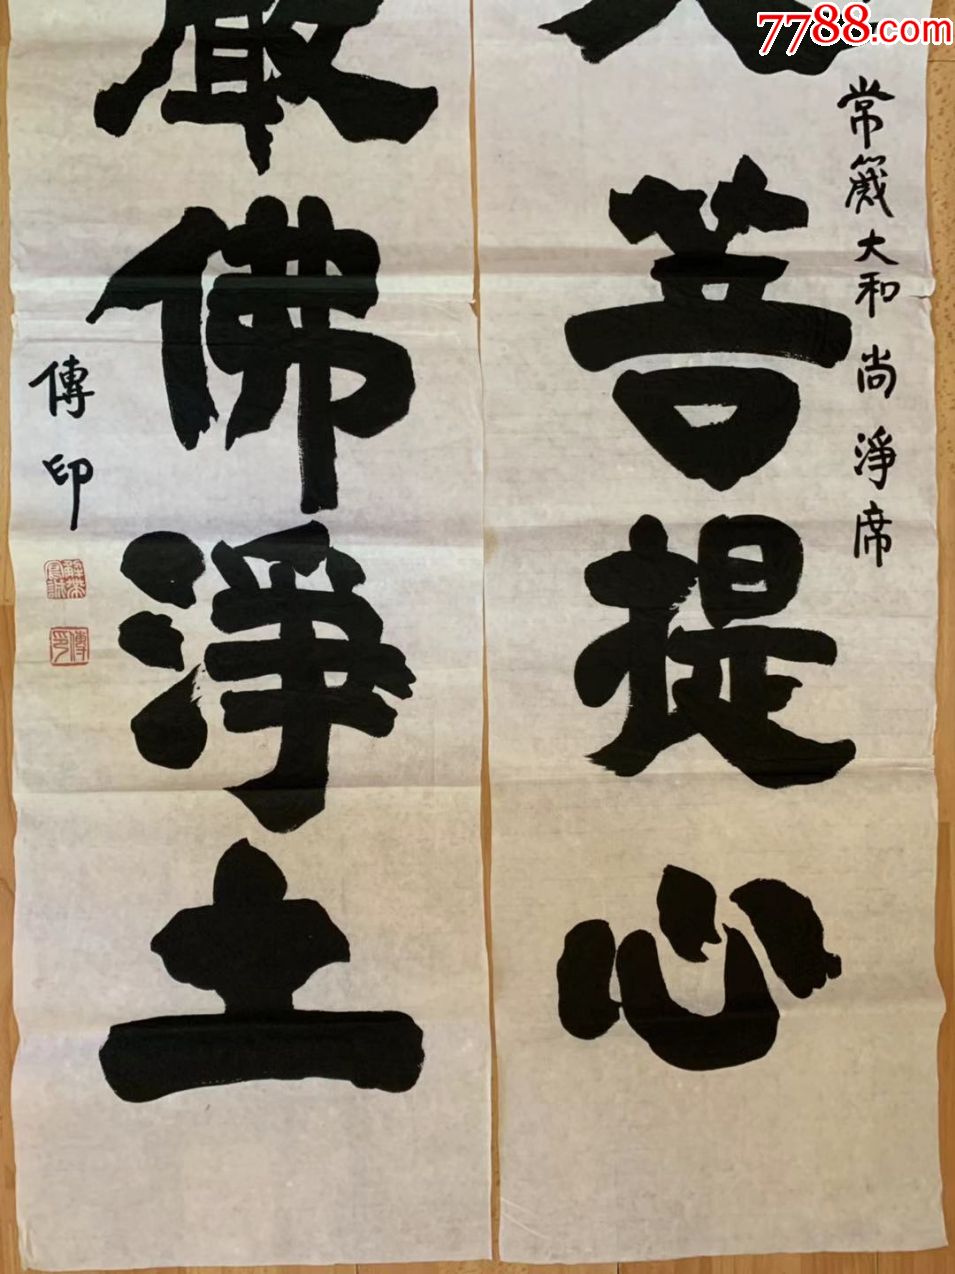 7788.com
常箴大和尚淨席
菩提心
嚴佛淨土
傳印
傳印